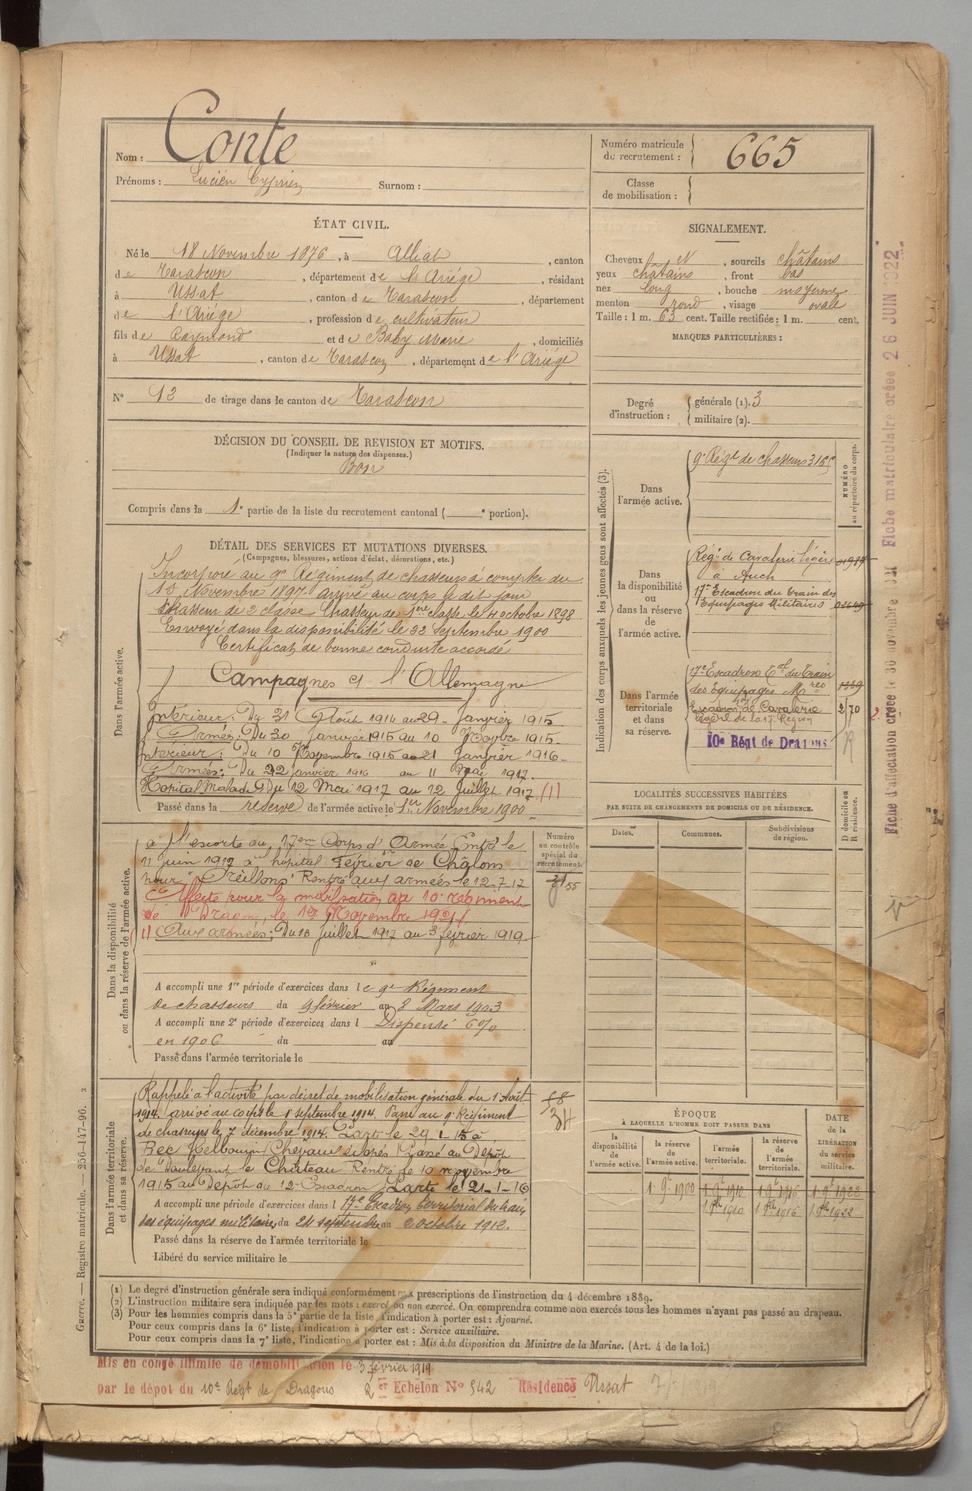 Nom : Conte
Prénoms : Lucien Cyprien Surnom :
Numéro matricule du recrutement : 665
Classe de mobilisation :
ÉTAT CIVIL.
Né le 18 Novembre 1876, à Alliat, canton
de Tarascon, département de l'Ariége, résidant
à Ussat, canton de Tarascon, département
de l'Ariége, profession de cultivateur
fils de Raymond et de Baby Marie, domiciliés
à Ussat, canton de Tarascon, département de l'Ariége
N° 13 de tirage dans le canton de Tarascon
DÉCISION DU CONSEIL DE REVISION ET MOTIFS.
(Indiquer la nature des dispenses.)
Bon
Compris dans la 1e partie de la liste du recrutement cantonal ( e portion).
SIGNALEMENT.
Cheveux N, sourcils châtains
yeux châtains, front bas
nez long, bouche moyenne
menton rond, visage ovale
Taille : 1 m. 63 cent. Taille rectifiée : 1 m. cent.
MARQUES PARTICULIÈRES :
Degré d'instruction : générale (1). 3
militaire (2).
DÉTAIL DES SERVICES ET MUTATIONS DIVERSES.
(Campagnes, blessures, actions d'éclat, décorations, etc.)
Dans l'armée active.
Incorporé au 9e Régiment de chasseurs à compter du
15 Novembre 1897 arrivé au corps le dit jour
Chasseur de 2e classe. Chasseur de 1ère classe le 4 octobre 1898
Envoyé dans la disponibilité le 22 Septembre 1900
Certificat de bonne conduite accordé
Campagnes cf l'Allemagne
Intérieur : Du 31 Août 1914 au 29 Janvier 1915
Armées : Du 30 janvier 1915 au 10 Novbre 1915
Intérieur : Du 10 Novembre 1915 au 21 Janvier 1916
Armées : Du 22 janvier 1916 au 11 Mai 1917
Hopital Malade Du 12 Mai 1917 au 12 Juillet 1917 (1)
Passé dans la réserve de l'armée active le 1er Novembre 1900
Dans la disponibilité ou dans la réserve de l'armée active.
à l'escorte du 17eme Corps d'Armée Entré le
11 juin 1917 à l'hopital Février de Châlons
pour Rentré aux armées le 12-7-17
Affecté pour la mobilisation au 10e régiment
de Dragons, le 1er Novembre 1921
(1) Aux armées : Du 13 juillet 1917 au 3 février 1919
Numéro au contrôle spécial du recrutement.
55
A accompli une 1re période d'exercices dans le 9e Régiment
de chasseurs du 9 février au 8 Mars 1903
A accompli une 2e période d'exercices dans l Dispensé 6%
en 1906 du au
Passé dans l'armée territoriale le
Dans l'armée territoriale et dans sa réserve.
Rappelé à l'activité par décret de mobilisation générale du 1 Août
1914. arrivé au corps le 1 septembre 1914. Passé au 9e Régiment
de chasseurs le 7 décembre 1914. Parti le 29-1-15 à
Chevaux Passé au Depôt
de Doulevant le Château Rentré le 10 novembre
1915 au Depôt du 12e Escadron. Parti le 21-1-16
A accompli une période d'exercices dans l 17e Escadron territorial du train
des équipages militaires du 24 septembre au 2 octobre 1912.
Passé dans la réserve de l'armée territoriale le
Libéré du service militaire le
34
Indication des corps auxquels les jeunes gens sont affectés (3).
NUMÉRO au répertoire du corps.
Dans l'armée active.
9e Régt de chasseurs
Dans la disponibilité ou dans la réserve de l'armée active.
Régt de Cavalerie légère
à Auch
17e Escadron du train des
Equipages Militaires
Dans l'armée territoriale et dans sa réserve.
17e Escadron Tal du Train
des équipages Mires
Escadron de Cavalerie
légère de la 17e Région
10e Régt de Dragons
LOCALITÉS SUCCESSIVES HABITÉES
PAR SUITE DE CHANGEMENTS DE DOMICILE OU DE RÉSIDENCE.
Dates. Communes. Subdivisions de région.
D domicile ou R résidence.
ÉPOQUE
À LAQUELLE L'HOMME DOIT PASSER DANS
la disponibilité de l'armée active.
la réserve de l'armée active.
l'armée territoriale.
la réserve de l'armée territoriale.
DATE de la LIBÉRATION du service militaire.
1 9e 1900 1 9e 1910 1 9e 1916 1 9e 1922
1 8bre 1910 1 8bre 1916 1 8bre 1922
(1) Le degré d'instruction générale sera indiqué conformément aux prescriptions de l'instruction du 4 décembre 1889.
(2) L'instruction militaire sera indiquée par les mots : exercé ou non exercé. On comprendra comme non exercés tous les hommes n'ayant pas passé au drapeau.
(3) Pour les hommes compris dans la 5e partie de la liste, l'indication à porter est : Ajourné.
Pour ceux compris dans la 6e liste, l'indication à porter est : Service auxiliaire.
Pour ceux compris dans la 7e liste, l'indication à porter est : Mis à la disposition du Ministre de la Marine. (Art. 4 de la loi.)
Mis en congé illimité de démobilisation le 3 février 1919
par le dépôt du 10e Régt de Dragons 2e Echelon N° 542 Résidence Ussat
Guerre. — Registre matricule. — 256-147-96.
Fiche matriculaire créée 26 JUIN 1922
Fiche d'affectation créée : 30 novembre